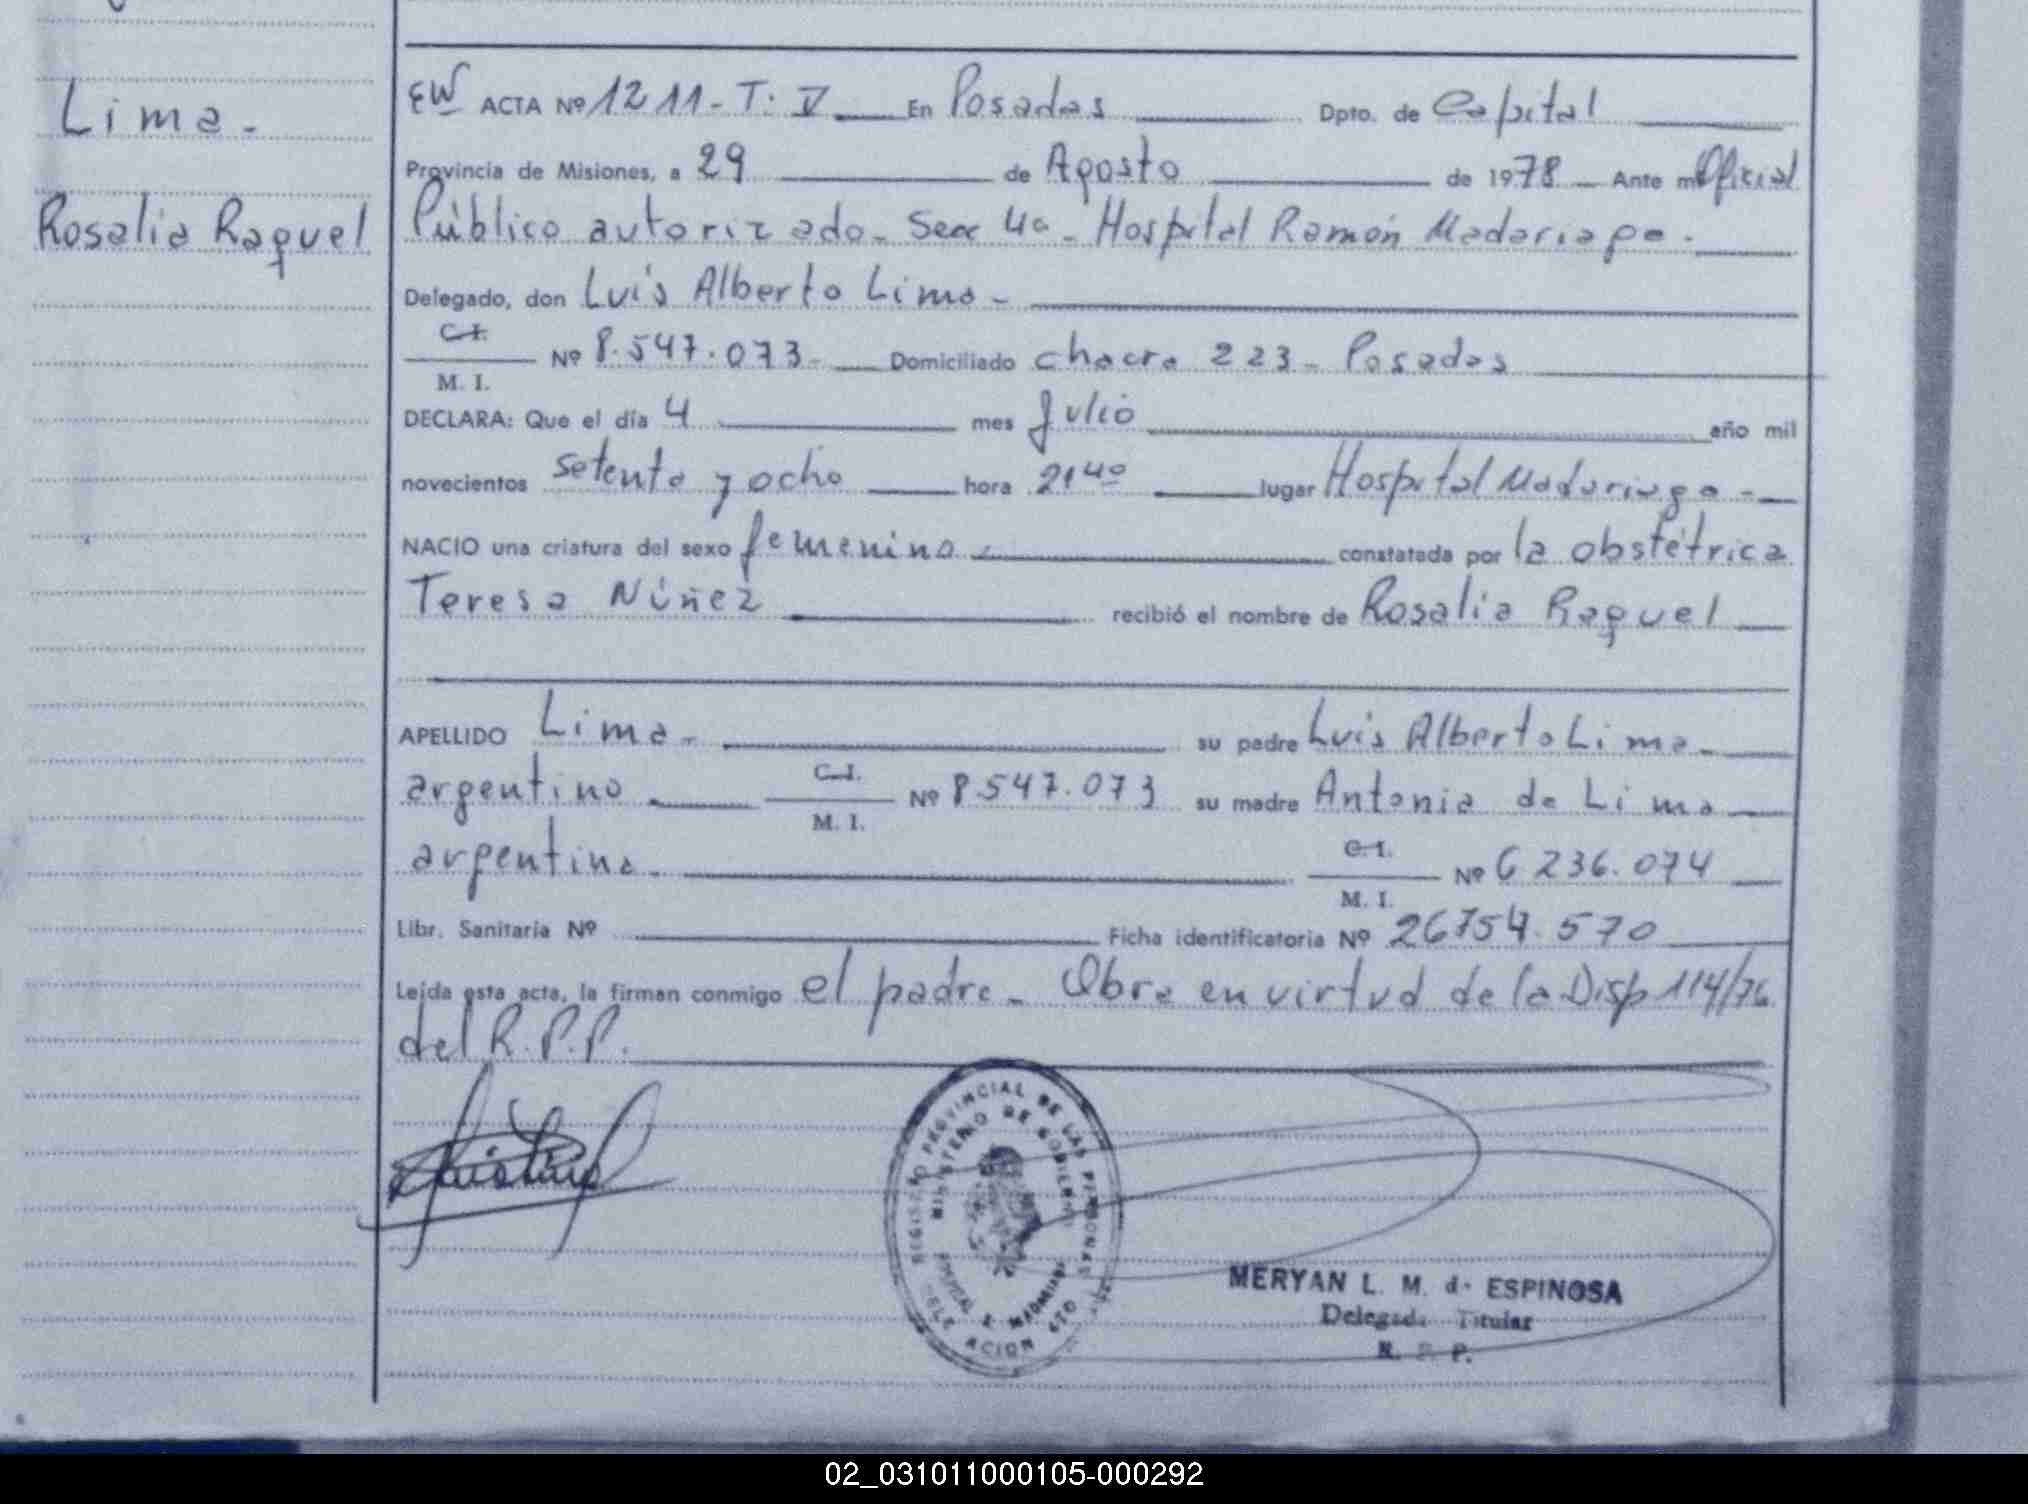 Lima -
Rosalia Raquel
EW ACTA Nº 1211 - T: V En Posadas Dpto. de Capital
Provincia de Misiones, a 29 de Agosto de 1978 Ante mí Oficial
Público autorizado - Secc 4a - Hospital Ramón Madariaga -
Delegado, don Luis Alberto Lima -
C.I.
Nº 8.547.073 - Domiciliado chacra 223 - Posadas
M. I.
DECLARA: Que el día 4 mes Julio año mil
novecientos setenta y ocho hora 21 40 lugar Hospital Madariaga -
NACIO una criatura del sexo femenino - constatada por la obstétrica
Teresa Núñez recibió el nombre de Rosalia Raquel
APELLIDO Lima - su padre Luis Alberto Lima -
C.I.
argentino Nº 8.547.073 su madre Antonia de Lima
M. I.
C.I.
argentina - Nº 6.236.074
M. I.
Libr. Sanitaria Nº Ficha identificatoria Nº 26754.570
Leída esta acta, la firman conmigo el padre - Obra en virtud de la Disp 114/76
del R.P.P.
REGISTRO PROVINCIAL DE LAS PERSONAS
MINISTERIO DE GOBIERNO
MERYAN L. M. de ESPINOSA
Delegada Titular
R. P. P.
02_031011000105-000292